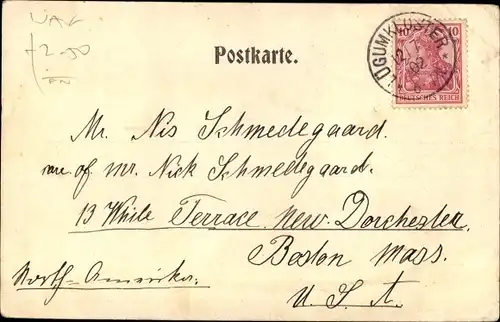 Postkarte.
LÜGUMKLOSTER
12
02
10
DEUTSCHES REICH
Mr. Nis Schmedegaard.
of mr. Nick Schmedegaard.
13 While Terrace New. Dorchester
Boston Mass.
North-Amerika.
U. S. A.